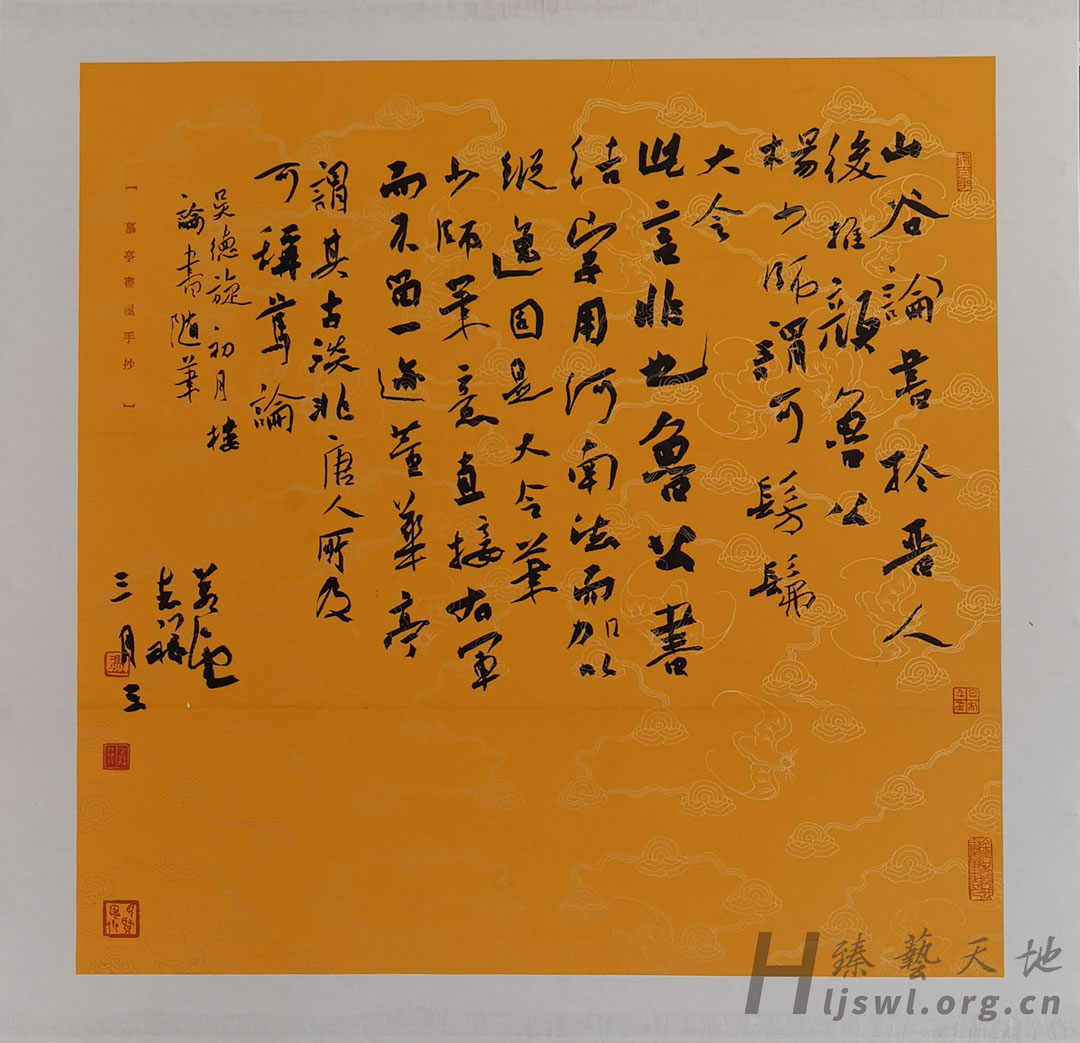 山谷論書於晉人
後推顔魯公
楊少師謂可髣髴
大令
此言非也魯公書
結字用河南法而加以
縱逸固是大令筆
少師筆意直接右軍
而不留一迹董華亭
謂其古淡非唐人所及
可稱篤論
吳德旋初月樓
論書隨筆
【慕亭書屋手抄】
三月三
臻藝天地
Hljswl.org.cn